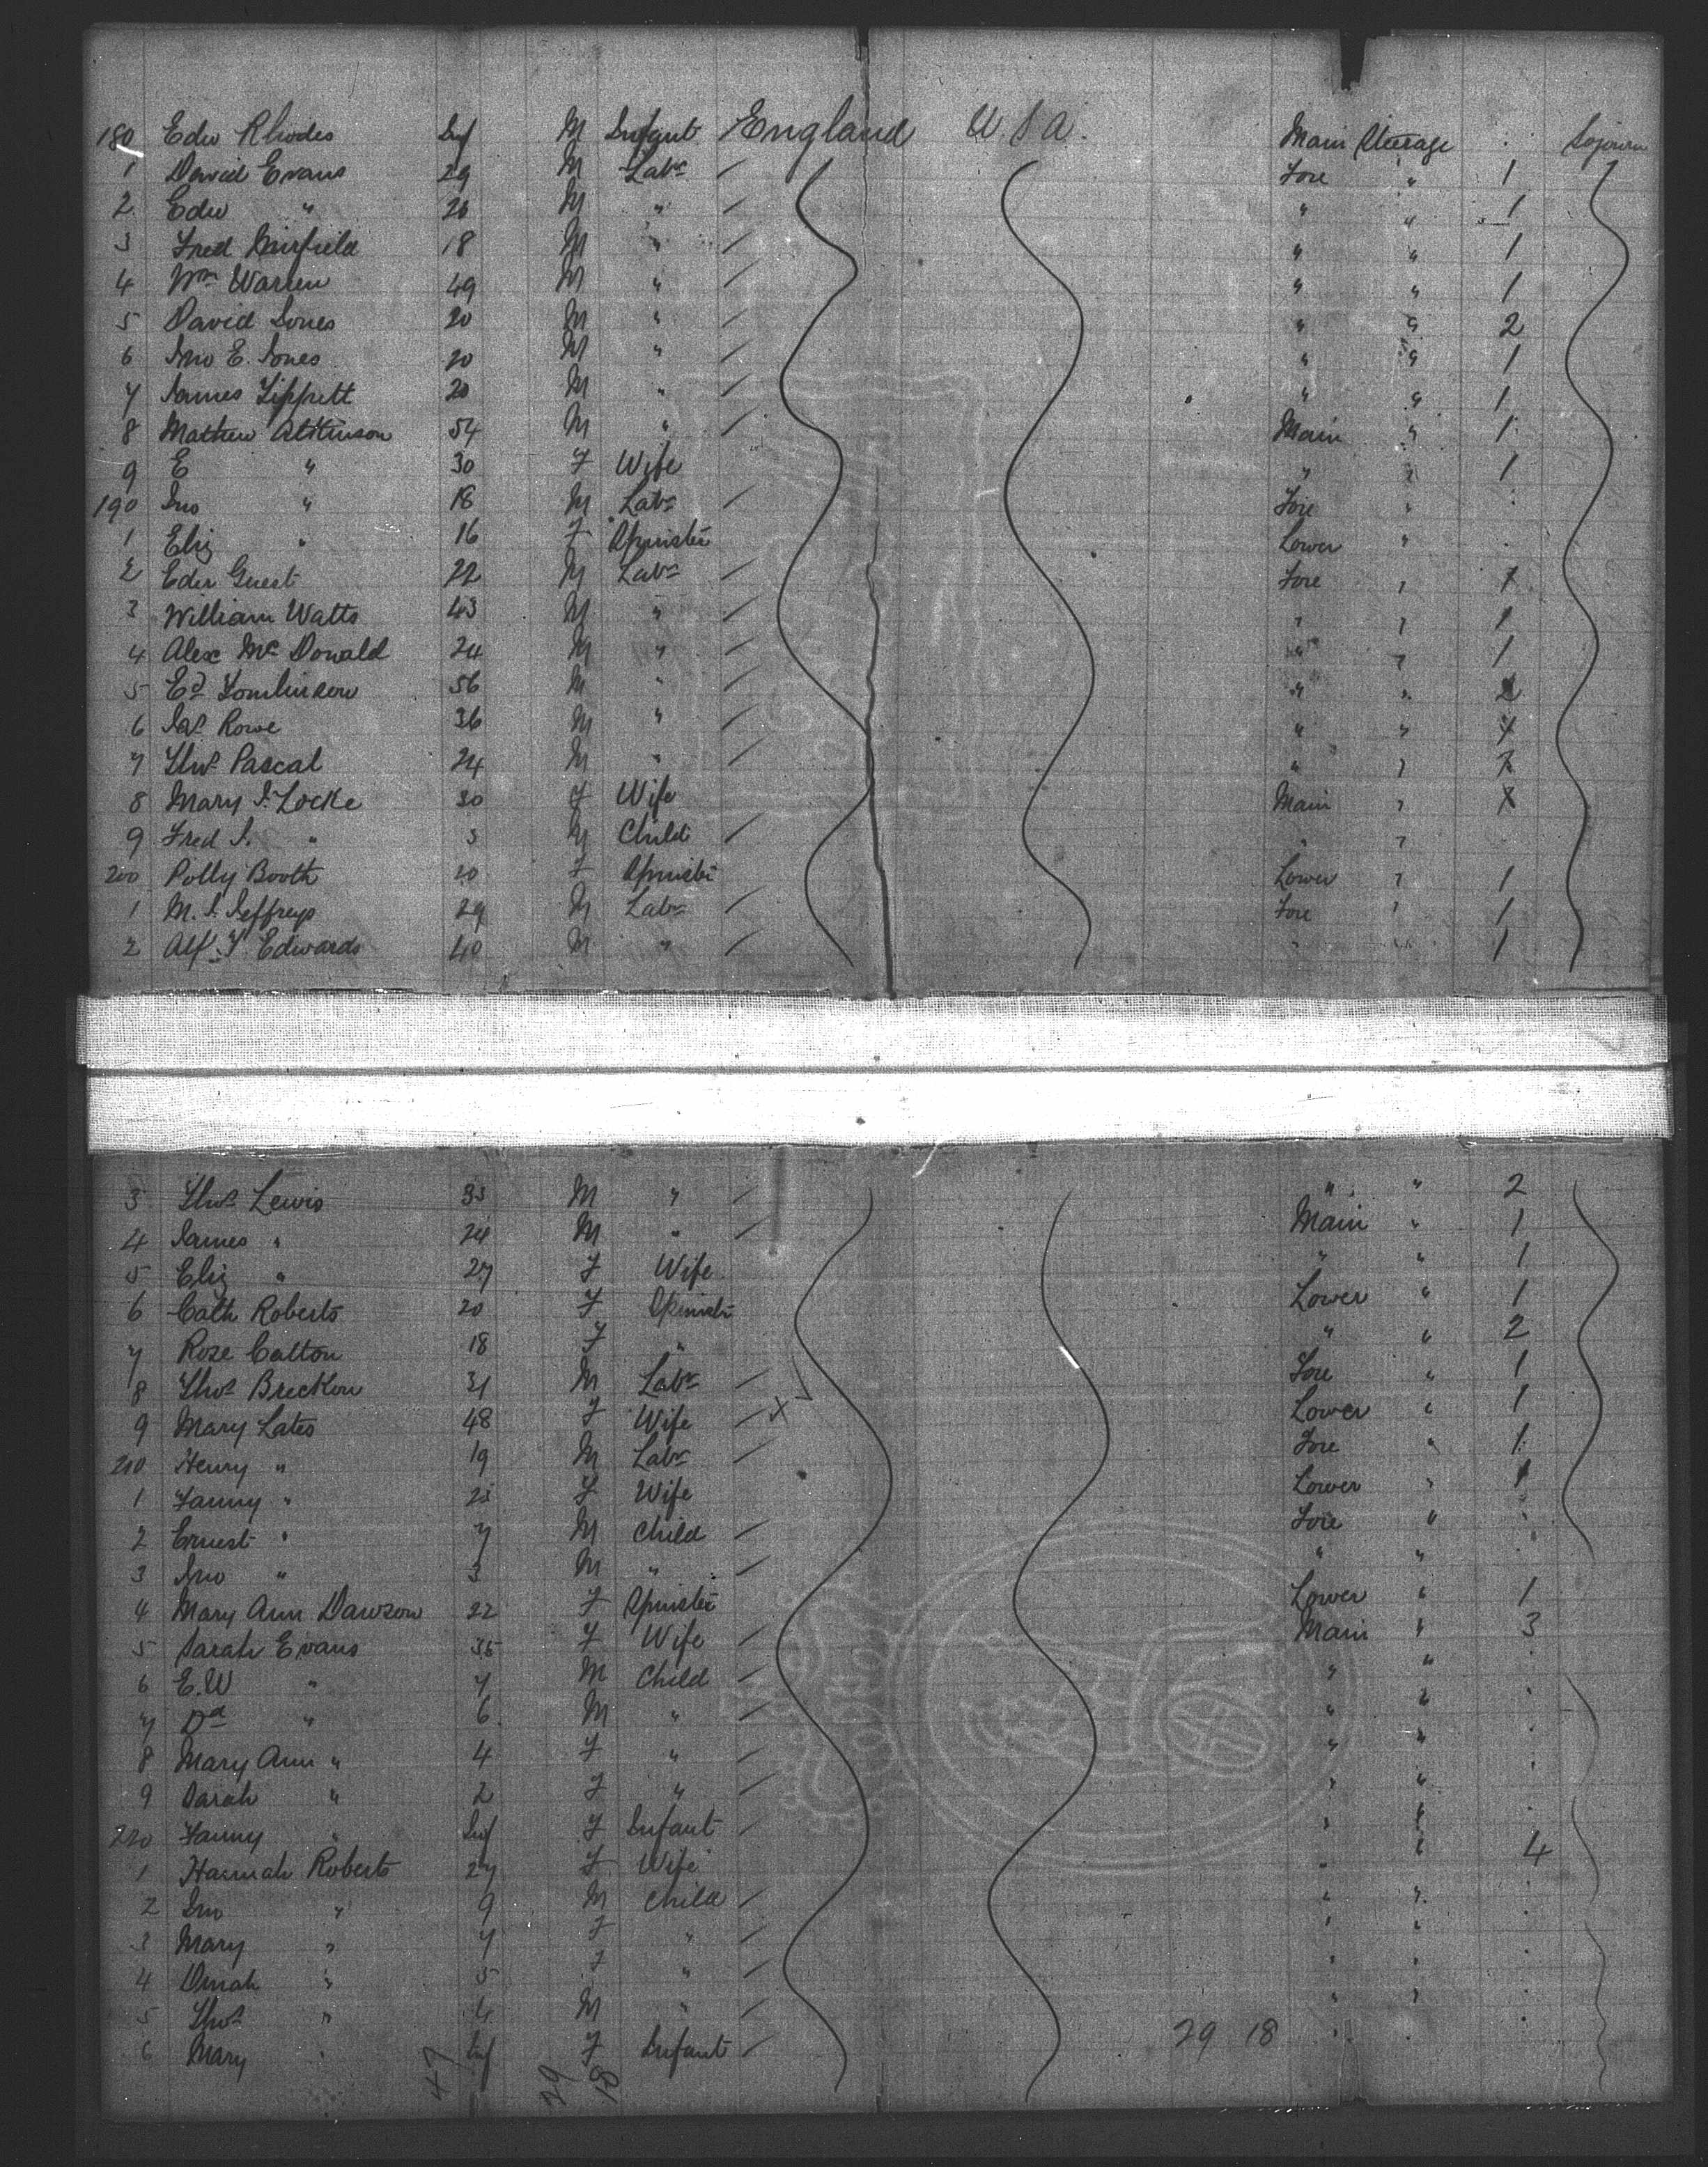 180 Edw Rhodes Inf M Infant England U S A. Main Steerage Sojourn
1 David Evans 29 M Labr Fore " 1
2 Edw " 26 M " " " 1
3 Fred Mirfield 18 M " " " 1
4 Wm Warren 49 M " " " 1
5 David Jones 20 M " " " 2
6 Jno E. Jones 20 M " " " 1
7 James Lippett 20 M " " " 1
8 Mathew Attkinson 54 M " Main " 1
9 E " 30 F Wife " " 1
190 Jno " 18 M Labr Fore "
1 Eliz " 16 F Spinster Lower "
2 Edw Guest 22 M Labr Fore " 1
3 William Watts 43 M " " " 1
4 Alex Mc Donald 24 M " " " 1
5 Ed Tomlinson 56 M " " " 2
6 Jas Rowe 36 M " " "
7 Thos Pascal 24 M " " "
8 Mary J. Locke 30 F Wife Main "
9 Fred J. " 3 M Child " "
200 Polly Booth 20 F Spinster Lower " 1
1 M. J. Jeffreys 29 M Labr Fore " 1
2 Alf. T Edwards 40 M " " " 1
3 Thos Lewis 33 M " " " 2
4 James " 24 M " Main " 1
5 Eliz " 27 F Wife " " 1
6 Cath Roberts 20 F Spinster Lower " 1
7 Rose Catton 18 F " " " 2
8 Thos Breckon 31 M Labr Fore " 1
9 Mary Lates 48 F Wife X Lower " 1
210 Henry " 19 M Labr Fore " 1
1 Fanny " 23 F Wife Lower " 1
2 Ernest " 7 M Child Fore "
3 Jno " 3 M " " "
4 Mary Ann Dawson 22 F Spinster Lower " 1
5 Sarah Evans 35 F Wife Main " 3
6 E.W " 7 M Child " "
7 Dd " 6 M " " "
8 Mary Ann " 4 F " " "
9 Sarah " 2 F " " "
220 Fanny " Inf F Infant " "
1 Hannah Roberts 27 F Wife " " 4
2 Jno " 9 M Child " "
3 Mary " 7 F " " "
4 Dinah " 5 F " " "
5 Thos " 4 M " " "
6 Mary " Inf F Infant 29 18
47 29 18